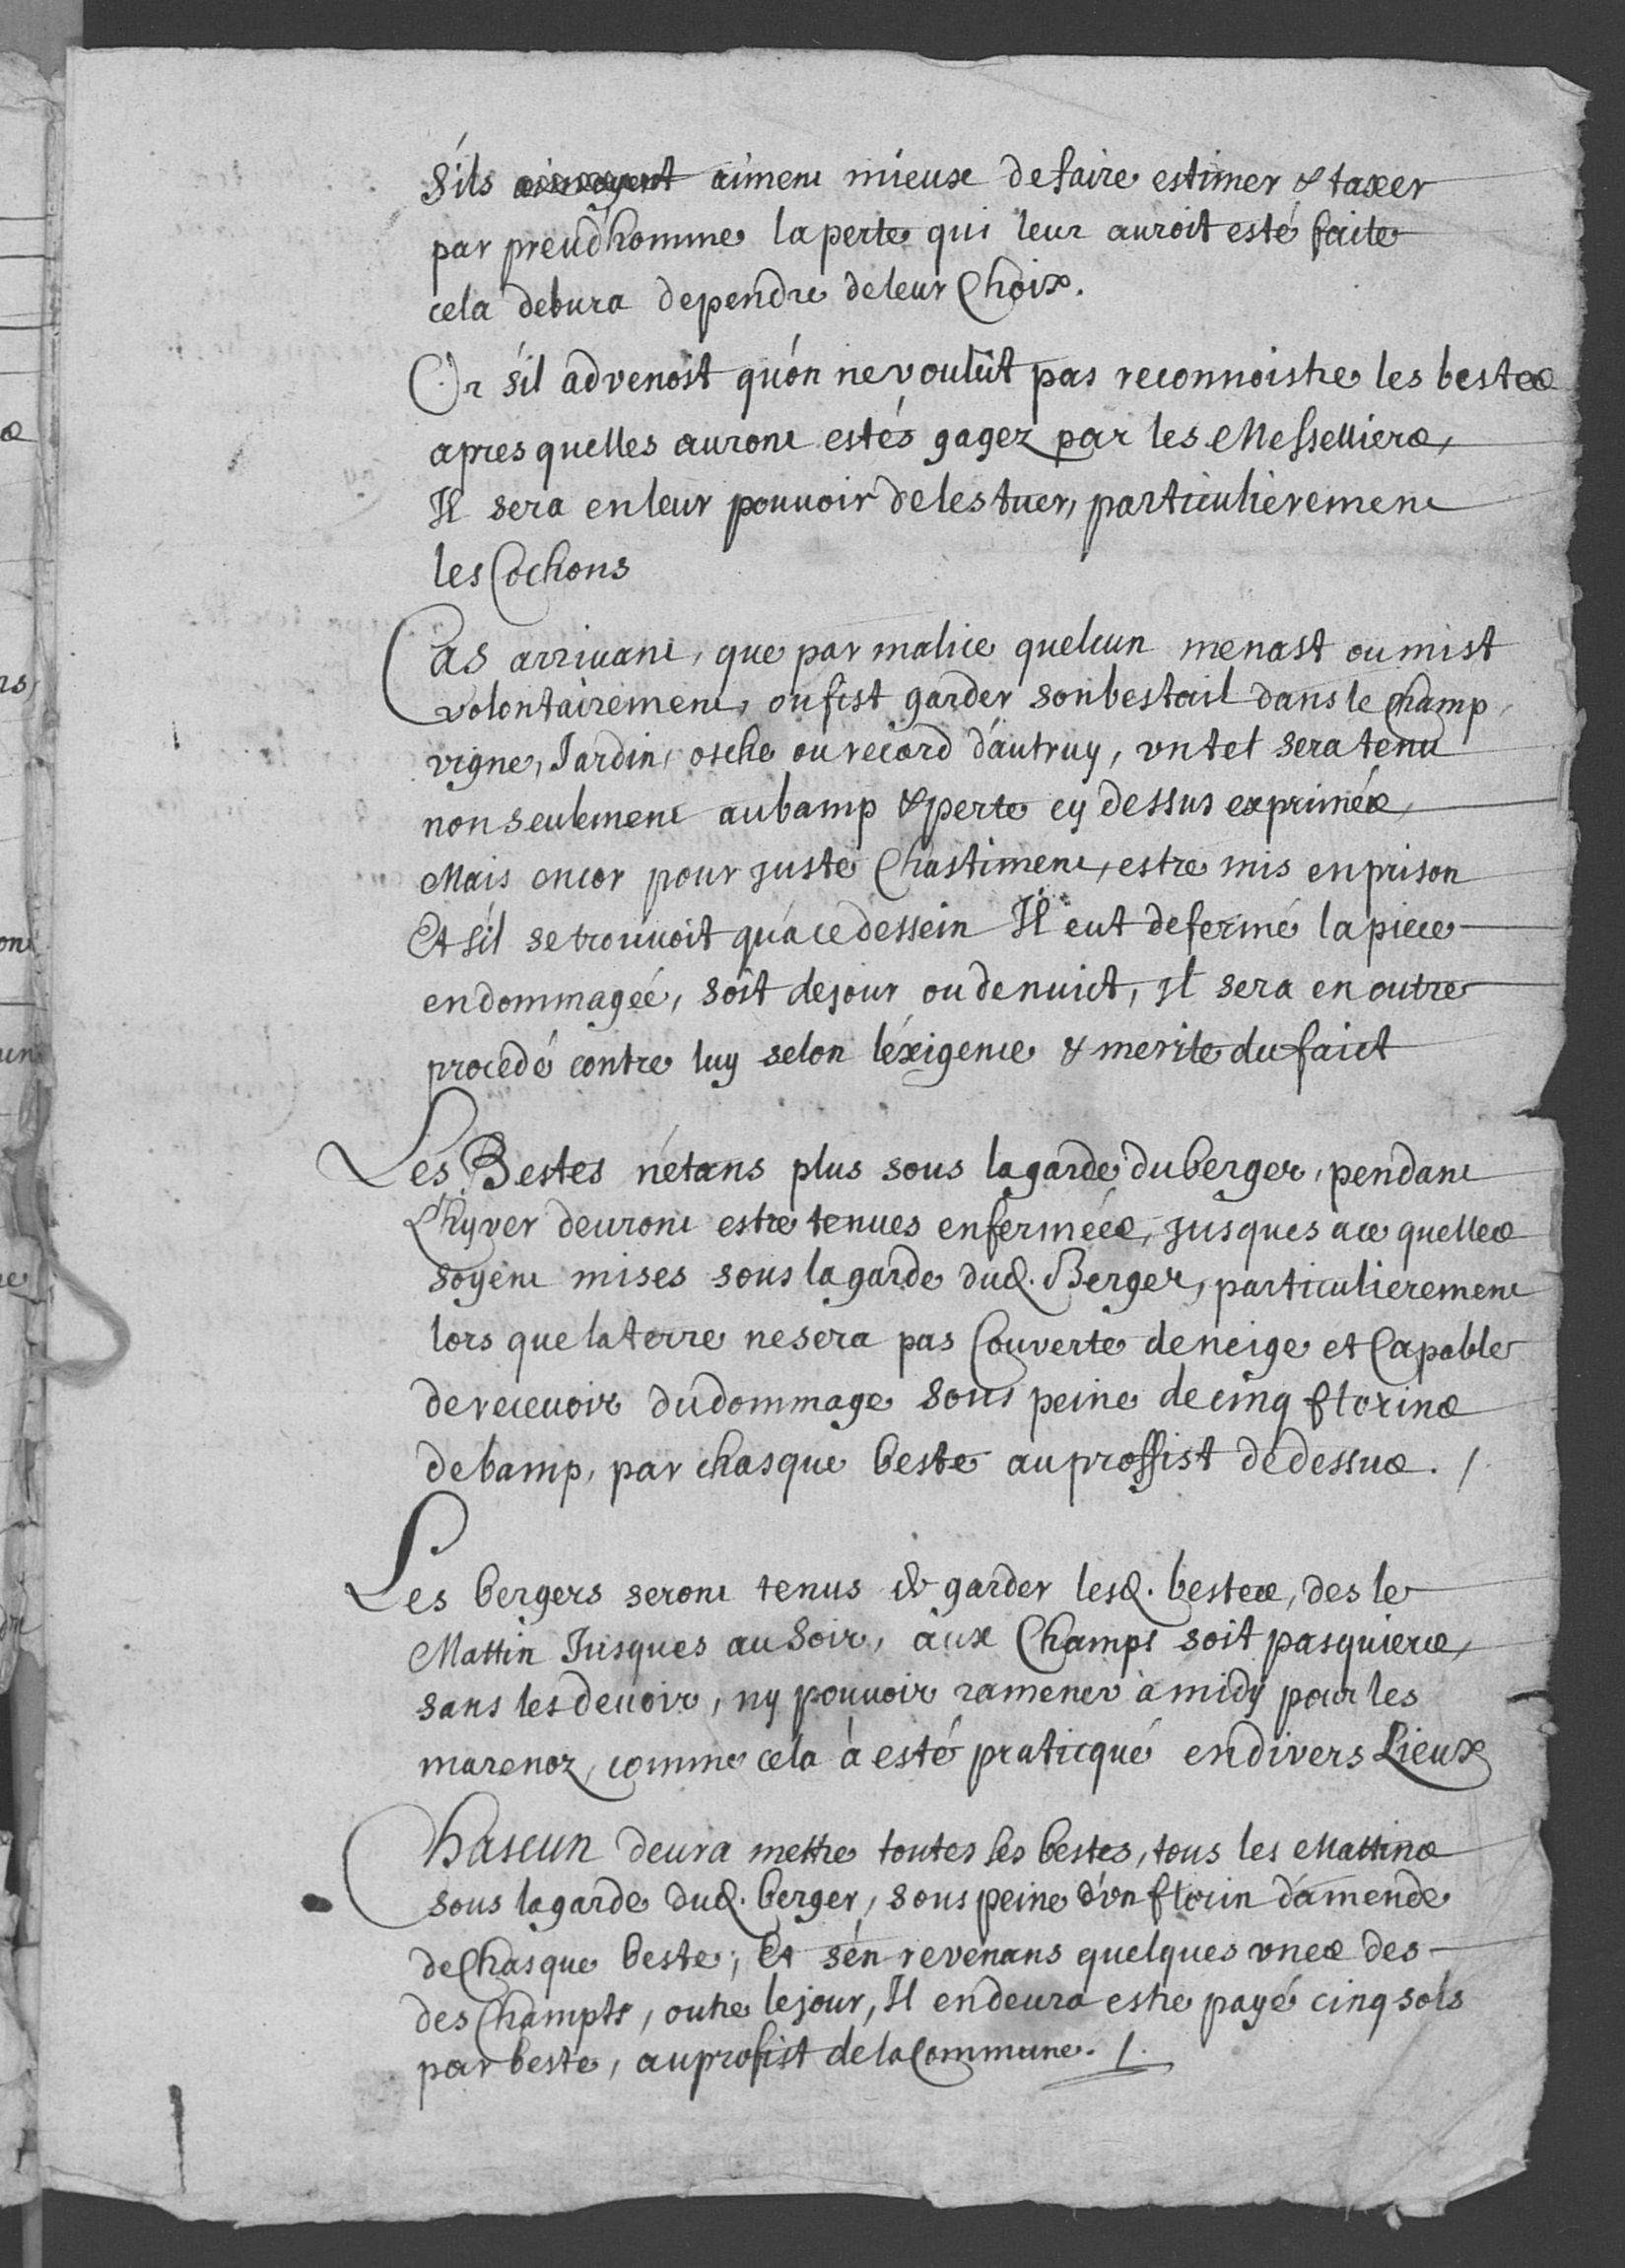 S'ils aiment mieux de faire estimer & taxer
par preud'homme la perte qui leur auroit esté faite
cela debura dependre de leur Choix.
Or s'il advenoit qu'on ne voulût pas reconnoistre les bestes
apres quelles auront estés gagez par les Messelliers,
Il sera en leur pouvoir de les tuer, particulièrement
les Cochons
Cas arrivant, que par malice quelcun menast ou mist
volontairement, ou fist garder son bestail dans le champ,
vigne, Jardin, osche ou record d'autruy, un tel sera tenu
non seulement au bamp & perte cy dessus exprimés,
Mais encor pour juste Chastiment, estre mis en prison
Et s'il se trouuoit qu'à ce dessein Il eut defermé la piece
endommageé, soit de jour ou de nuict, il sera en outre
procedé contre luy selon l'exigence & merite du faict
Les Bestes n'étans plus sous la garde du berger, pendant
L'hyver deuront estre tenues enfermées, jusques a ce quelles
soyent mises sous la garde dud. Berger, particulierement
lors que la terre ne sera pas Couverte de neige et Capable
de recevoir du dommage sous peine de cinq florins
de bamp, par chasque beste au proffist de dessus. /
Les bergers seront tenus de garder lesd. bestes, des le
Mattin Jusques au Soir, aux Champs soit pasquiers,
sans les devoir, ny pouvoir ramener à midy pour les
marenoz, comme cela à esté praticqué en divers Lieux
Chascun deura mettre toutes ses bestes, tous les Mattins
sous la garde dud. berger, sous peine d'vn florin d'amende
de Chasque beste; Et s'en revenans quelques vnes des
des Champts, outre le jour, Il en deura estre payé cinq sols
par beste, au profist de la Commune. /.